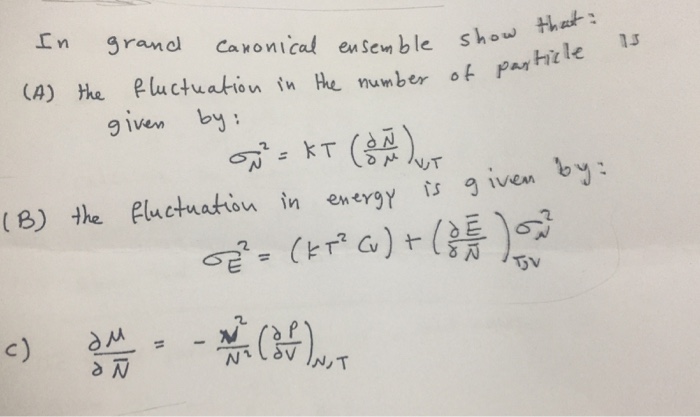 In grand canonical ensemble show that:
(A) the fluctuation in the number of particle is
given by:
σ_N² = KT (∂N̄/∂μ)_V,T
(B) the fluctuation in energy is given by:
σ_E² = (KT² Cv) + (∂Ē/∂N̄)_T,V σ_N²
c) ∂μ/∂N̄ = - V²/N² (∂P/∂V)_N,T